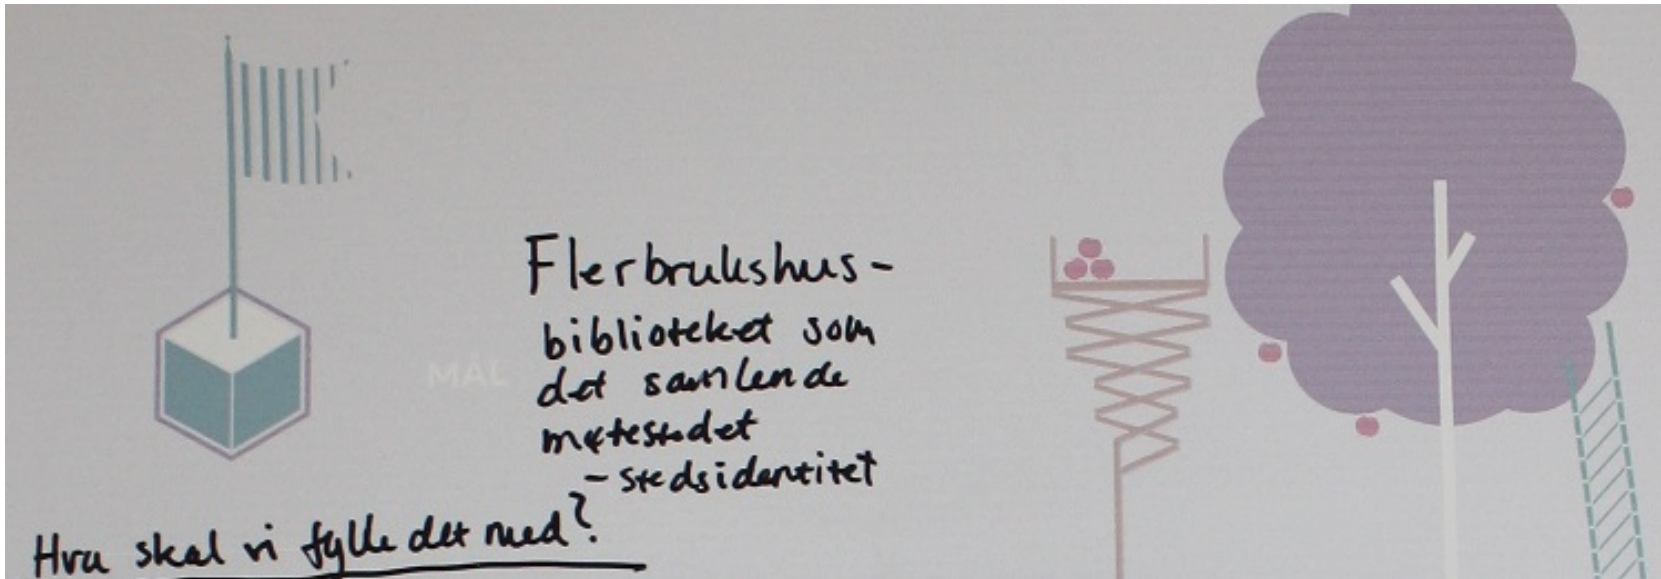 Flerbrukshus-
MÅL
biblioteket som
det samlende
møtestedet
- stedsidentitet
Hva skal vi fylle det med?